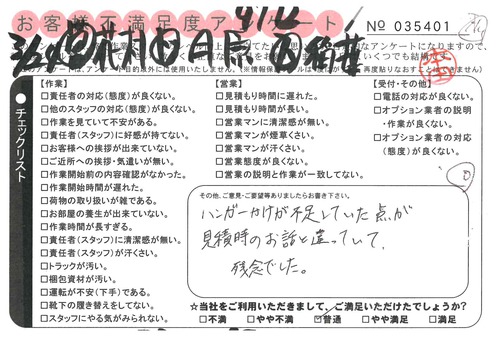 お客様不満足度アンケート
No 035401
チェックリスト
【作業】
□責任者の対応(態度)が良くない。
□他のスタッフの対応(態度)が良くない。
□作業を見ていて不安がある。
□責任者(スタッフ)に好感が持てない。
□お客様への挨拶が出来ていない。
□ご近所への挨拶・気遣いが無い。
□作業開始前の内容確認がなかった。
□作業開始時間が遅れた。
□荷物の取り扱いが雑である。
□お部屋の養生が出来ていない。
□作業時間が長すぎる。
□責任者(スタッフ)に清潔感が無い。
□責任者(スタッフ)が汗くさい。
□トラックが汚い。
□梱包資材が汚い。
□運転が不安(下手)である。
□靴下の履き替えをしてない。
□スタッフにやる気がみられない。
【営業】
□見積もり時間に遅れた。
□見積もり時間が長い。
□営業マンに清潔感が無い。
□営業マンが煙草くさい。
□営業マンが汗くさい。
□営業態度が良くない。
□営業の説明と作業が一致してない。
【受付・その他】
□電話の対応が良くない。
□オプション業者の説明
・作業が良くない。
□オプション業者の対応
(態度)が良くない。
その他、ご意見・ご要望等ありましたらお書き下さい。
ハンガーかけが不足していた点が
見積時のお話と違っていて、
残念でした。
☆当社をご利用いただきまして、ご満足いただけたでしょうか?
□不満 □やや不満 ☑普通 □やや満足 □満足